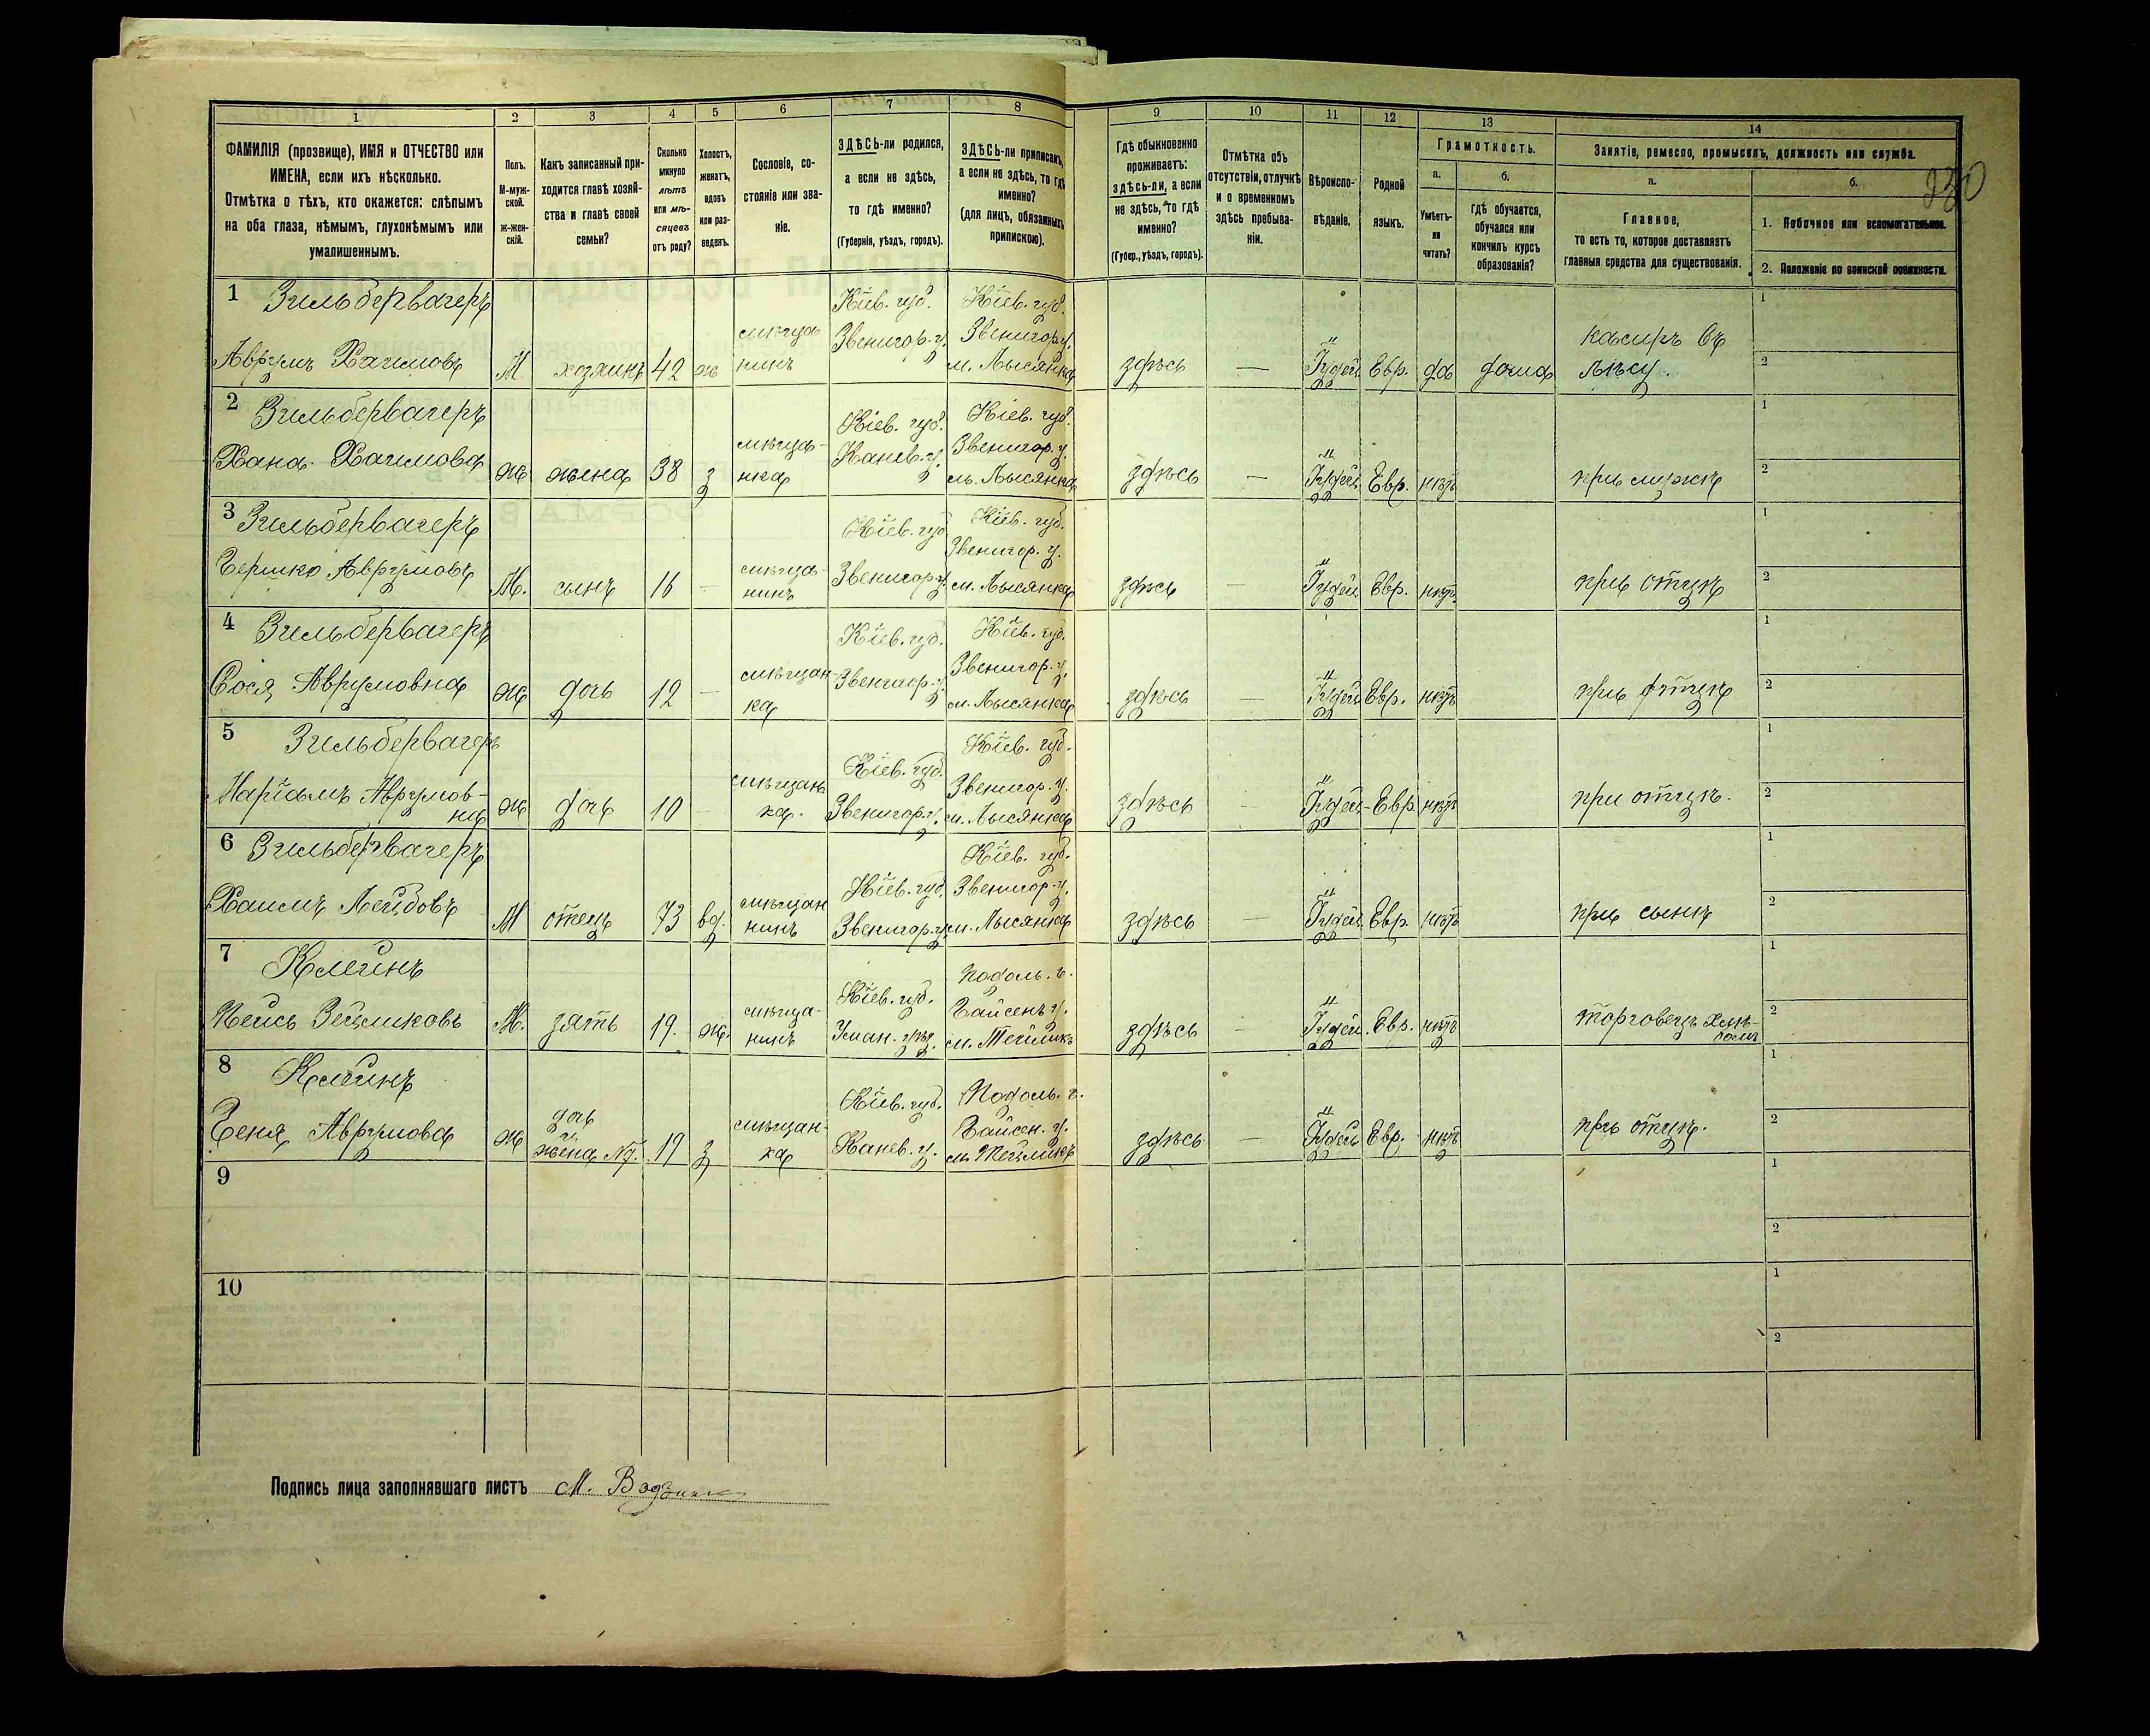 1 2 3 4 5 6 7 8 9 10 11 12 13 14
ФАМИЛІЯ (прозвище), ИМЯ и ОТЧЕСТВО или
ИМЕНА, если ихъ нѣсколько.
Отмѣтка о тѣхъ, кто окажется: слѣпымъ
на оба глаза, нѣмымъ, глухонѣмымъ или
умалишеннымъ.
Полъ.
М-муж-
ской.
Ж-жен-
скій.
Какъ записанный при-
ходится главѣ хозяй-
ства и главѣ своей
семьи?
Сколько
минуло
лѣтъ
или мѣ-
сяцевъ
отъ роду?
Холостъ,
женатъ,
вдовъ
или раз-
веденъ.
Сословіе, со-
стояніе или зва-
ніе.
ЗДѢСЬ-ли родился,
а если не здѣсь,
то гдѣ именно?
(Губернія, уѣздъ, городъ).
ЗДѢСЬ-ли приписанъ,
а если не здѣсь, то гдѣ
именно?
(для лицъ, обязанныхъ
припискою).
Гдѣ обыкновенно
проживаетъ:
здѣсь-ли, а если
не здѣсь, то гдѣ
именно?
(Губер., уѣздъ, городъ).
Отмѣтка объ
отсутствіи, отлучкѣ
и о временномъ
здѣсь пребыва-
ніи.
Вѣроиспо-
вѣданіе.
Родной
языкъ.
Грамотность.
а.
Умѣетъ-
ли
читать?
б.
гдѣ обучается,
обучался или
кончилъ курсъ
образованія?
Занятіе, ремесло, промыселъ, должность или служба.
а.
Главное,
то есть то, которое доставляетъ
главныя средства для существованія.
б.
1. Побочное или вспомогательное.
2. Положеніе по воинской повинности.
1 Зильбервагеръ
Аврумъ Хаимовъ
М
хозяинъ
42
ж
мѣща
нинъ
Кіев. губ.
Звенигор. у.
Кіев. губ.
Звенигор. у.
м. Лысянка
здѣсь
—
Іудей
Евр.
да
дома
касиръ въ
лѣсу.
1
2
2 Зильбервагеръ
Хана Хаимова
ж
жена
38
з
мѣща-
нка
Кіев. губ.
Канев. у.
Кіев. губ.
Звенигор. у.
м. Лысянка
здѣсь
—
Іудей
Евр.
нѣтъ
при мужѣ
1
2
3 Зильбервагеръ
Гершко Аврумовъ
М.
сынъ
16
—
мѣща-
нинъ
Кіев. губ.
Звенигор. у.
Кіев. губ.
Звенигор. у.
м. Лысянка
здѣсь
—
Іудей
Евр.
нѣтъ
при отцѣ
1
2
4 Зильбервагеръ
Сося Аврумовна
ж
дочь
12
—
мѣщан-
ка
Кіев. губ.
Звенигор. у.
Кіев. губ.
Звенигор. у.
м. Лысянка
здѣсь
—
Іудей
Евр.
нѣтъ
при отцѣ
1
2
5 Зильбервагеръ
Маріамъ Аврумов-
на
ж
дочь
10
—
мѣщан
ка.
Кіев. губ.
Звенигор. у.
Кіев. губ.
Звенигор. у.
м. Лысянка
здѣсь
—
Іудей
Евр.
нѣтъ
при отцѣ.
1
2
6 Зильбервагеръ
Хаимъ Лейбовъ
М
отецъ
73
вд.
мѣщан
нинъ
Кіев. губ.
Звенигор. у.
Кіев. губ.
Звенигор. у.
м. Лысянка
здѣсь
—
Іудей
Евр.
нѣтъ
при сынѣ
1
2
7 Клейнъ
Пейсь Зейликовъ
М.
зять
19.
ж.
мѣща-
нинъ
Кіев. губ.
Уман. уѣз.
Подоль. г.
Гайсенъ у.
м. Тепликъ
здѣсь
—
Іудей
Евр.
нѣтъ
торговецъ хлѣ-
бомъ
1
2
8 Клейнъ
Геня Аврумова
ж
дочь
жена №7.
19
з
мѣщан-
ка
Кіев. губ.
Канев. у.
Подоль. г.
Гайсен. у.
м. Тепликъ
здѣсь
—
Іудей
Евр.
нѣтъ
при отцѣ.
1
2
9
1
2
10
1
2
Подпись лица заполнявшаго листъ М.